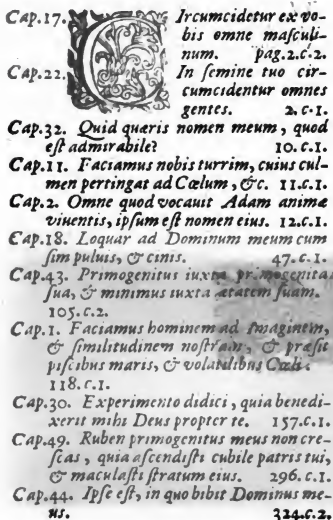 Cap.17. Circumcidetur ex vo-
bis omne maſculi-
num. pag.2.c.2.
Cap.22. In ſemine tuo cir-
cumcidentur omnes
gentes. 2.c.1.
Cap.32. Quid queris nomen meum, quod
eſt admirabile? 10.c.1.
Cap.11. Faciamus nobis turrim, cuius cul-
men pertingat ad Cœlum, &c. 11.c.1.
Cap.2. Omne quod vocauit Adam animæ
viuentis, ipſum eſt nomen eius. 12.c.1.
Cap.18. Loquar ad Dominum meum cum
ſim puluis, & cinis. 47.c.1.
Cap.43. Primogenitus iuxta primogenita
ſua, & minimus iuxta ætatem ſuam.
105.c.2.
Cap.1. Faciamus hominem ad Imaginem,
& ſimilitudinem noſtram, & præſit
piſcibus maris, & volatilibus Cœli.
118.c.1.
Cap.30. Experimento didici, quia benedi-
xerit mihi Deus propter te. 157.c.1.
Cap.49. Ruben primogenitus meus non cre-
ſcas, quia aſcendiſti cubile patris tui,
& maculaſti ſtratum eius. 296.c.1.
Cap.44. Ipſe eſt, in quo bibit Dominus me-
us. 324.c.2.